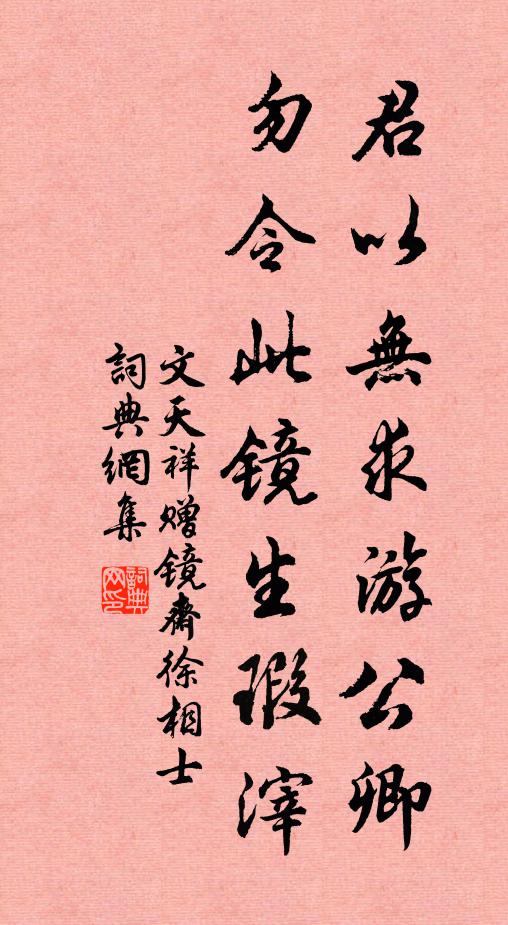 君以無求游公卿
勿令此镜生瑕滓
文天祥赠镜齋徐相士
詞典網集
詞典网印